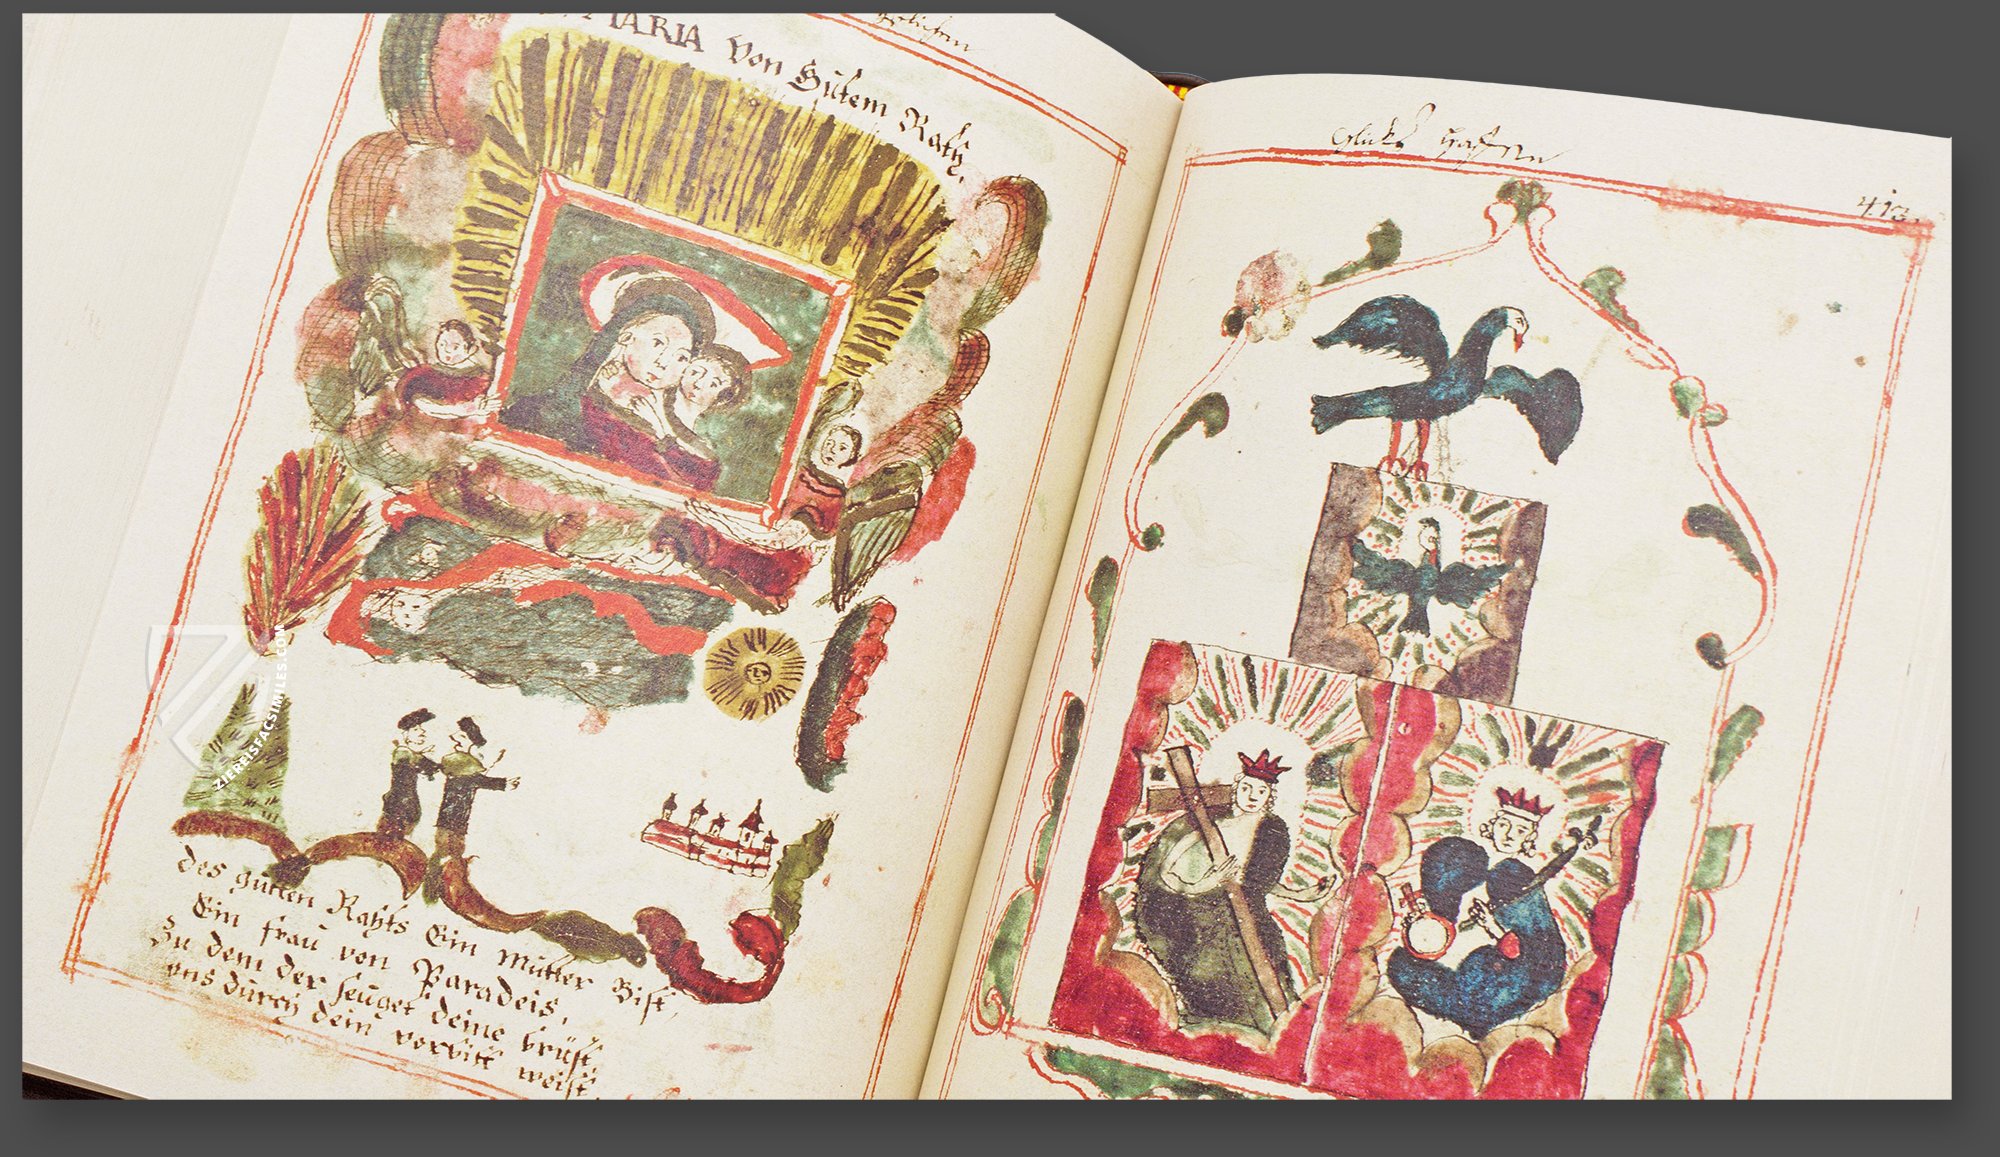 MARIA von Gutem Rath.
des gutten Rahts Ein mutter Bist,
Ein frau von Paradeis,
Zu dem der seuget deine brüst
uns durch dein vorbitt weist
Glicks
413.
ZIEREISFACSIMILES.COM